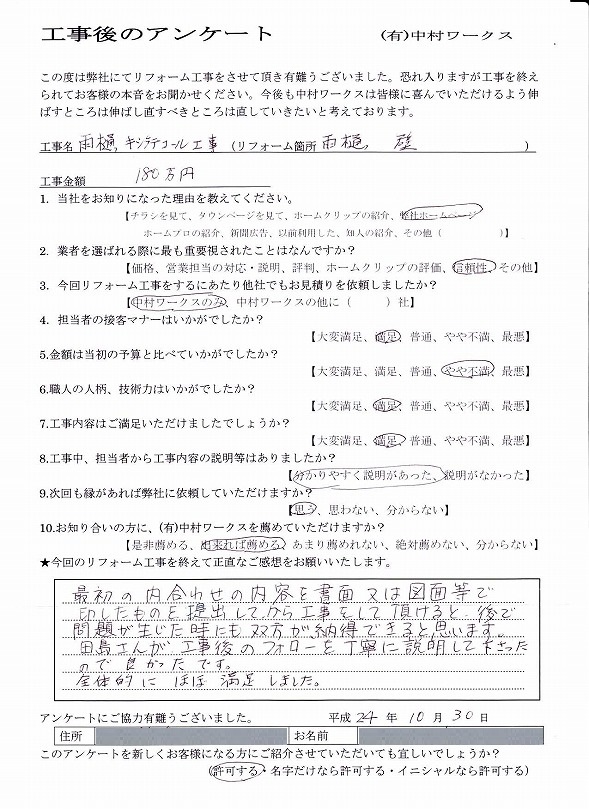 工事後のアンケート　(有)中村ワークス
この度は弊社にてリフォーム工事をさせて頂き有難うございました。恐れ入りますが工事を終え
られてお客様の本音をお聞かせください。今後も中村ワークスは皆様に喜んでいただけるよう伸
ばすところは伸ばし直すべきところは直していきたいと考えております。
工事名 雨樋、キシラデコール工事 (リフォーム箇所 雨樋、壁 )
工事金額 180万円
1. 当社をお知りになった理由を教えてください。
【チラシを見て、タウンページを見て、ホームクリップの紹介、弊社ホームページ
ホームプロの紹介、新聞広告、以前利用した、知人の紹介、その他（　　）】
2. 業者を選ばれる際に最も重要視されたことはなんですか？
【価格、営業担当の対応・説明、評判、ホームクリップの評価、信頼性、その他】
3. 今回リフォーム工事をするにあたり他社でもお見積りを依頼しましたか？
【中村ワークスのみ、中村ワークスの他に（　　）社】
4. 担当者の接客マナーはいかがでしたか？
【大変満足、満足、普通、やや不満、最悪】
5.金額は当初の予算と比べていかがでしたか？
【大変満足、満足、普通、やや不満、最悪】
6.職人の人柄、技術力はいかがでしたか？
【大変満足、満足、普通、やや不満、最悪】
7.工事内容はご満足いただけましたでしょうか？
【大変満足、満足、普通、やや不満、最悪】
8.工事中、担当者から工事内容の説明等はありましたか？
【分かりやすく説明があった、説明がなかった】
9.次回も縁があれば弊社に依頼していただけますか？
【思う、思わない、分からない】
10.お知り合いの方に、(有)中村ワークスを薦めていただけますか？
【是非薦める、出来れば薦める、あまり薦めれない、絶対薦めない、分からない】
★今回のリフォーム工事を終えて正直なご感想をお願いいたします。
最初の内合わせの内容を書面又は図面等で
印したものを提出してから工事をして頂けると、後で
問題が生じた時にも双方が納得できると思います。
田島さんが工事後のフォローを丁寧に説明して下さった
ので良かったです。
全体的にほぼ満足しました。
アンケートにご協力有難うございました。　平成 24 年 10 月 30 日
住所　お名前
このアンケートを新しくお客様になる方にご紹介させていただいても宜しいでしょうか？
（許可する・名字だけなら許可する・イニシャルなら許可する）